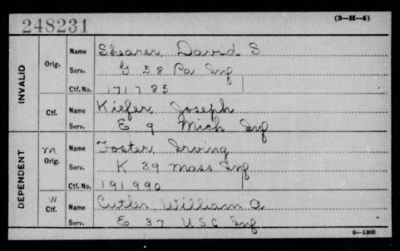 248231
(3—H—4)
INVALID
Orig.
Name Shearer David S
Serv. G 58 Pa Inf
Ctf. No. 171785
Ctf.
Name Kiefer Joseph
Serv. E 9 Mich Inf
DEPENDENT
M Orig.
Name Foster Irving
Serv. K 39 Mass Inf
Ctf. No. 191990
W Ctf.
Name Cutler William A
Serv. E 37 USC Inf